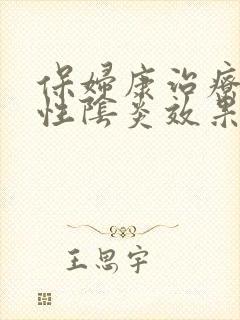 保婦康治療
性陰炎效果
王思宇